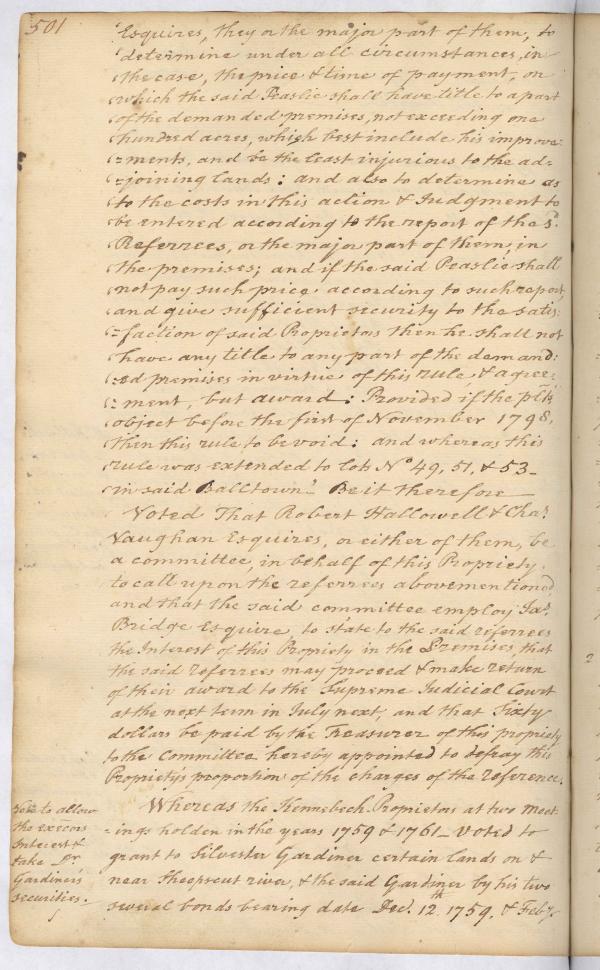 501
"Esquires, they or the major part of them, to
"determine under all circumstances, in
"the case, the price & time of payment, on
"which the said Peaslie shall have title to a part
"of the demanded premises, not exceeding one
"hundred acres, which best include his improve=
"=ments, and be the least injurious to the ad=
"=joining lands: and also to determine as
"to the costs in this action & Judgment to
"be entered according to the report of the sd.
"Referrees, or the major part of them, in
"the premises; and if the said Peaslie shall
"not pay such price according to such report,
"and give sufficient security to the satis=
"=faction of said Proprietors then he shall not
"have any title to any part of the demand=
"=ed premises in virtue of this rule, & agree=
"=ment, but award: Provided if the pltfs
"object before the first of November 1798,
"then this rule to be void: and whereas this
"rule was extended to lots No. 49, 51, & 53_
"in said Balltown" Be it therefore
Voted That Robert Hallowell & Chas.
Vaughan Esquires, or either of them, be
a committee, in behalf of this Propriety,
to call upon the referrees abovementioned,
and that the said committee employ Jas.
Bridge Esquire, to state to the said referrees
the Interest of this Propriety in the Premises, that
the said referrees may proceed & make return
of their award to the Supreme Judicial Court
at the next term in July next, and that Sixty
dollars be paid by the Treasurer of this propriety
to the Committee hereby appointed to defray this
Propriety's proportion of the charges of the reference.
Whereas the Kennebeck Proprietors at two Meet
=ings holden in the years 1759 & 1761_ Voted to
grant to Silvester Gardiner certain lands on &
near Sheepscut river, & the said Gardiner by his two
several bonds bearing date Decr. 12th 1759, & Feby.
to allow
the execors
Interest &
take Dr.
Gardiner's
securities.
2